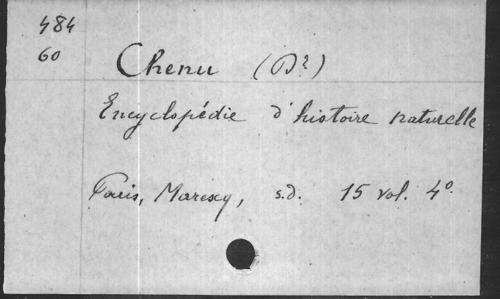 484
60
Chenu (Dr)
Encyclopédie d'histoire naturelle
Paris, Marescq, s.d. 15 vol. 4º